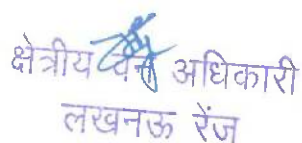 क्षेत्रीय वन अधिकारी
लखनऊ रेंज